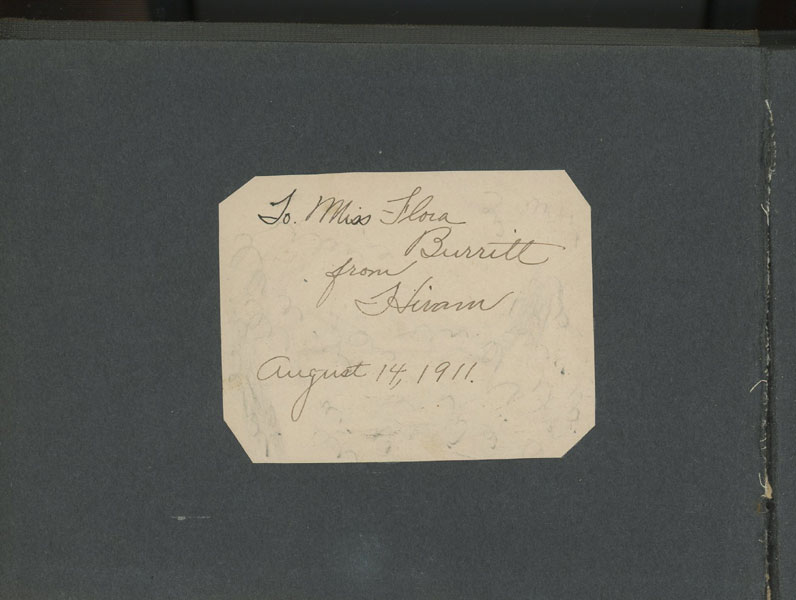 To. Miss Flora
Burritt
from
Hiram
August 14, 1911.